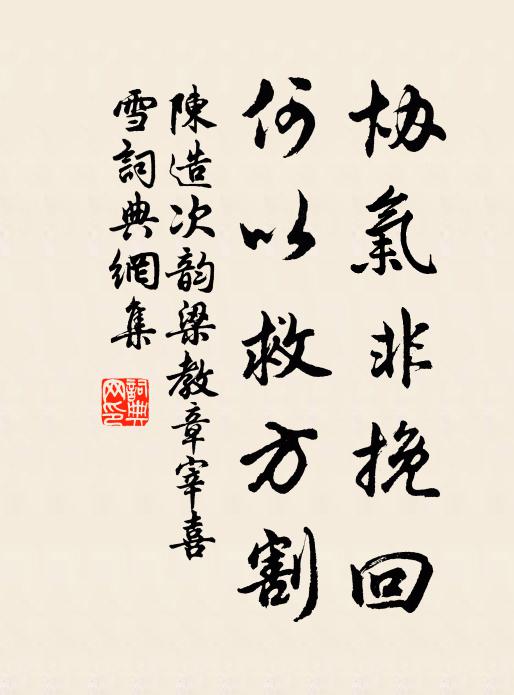 协氣非挽回
何以救方割
陳造次韵梁教章宰喜
雪詞典網集
詞典网印